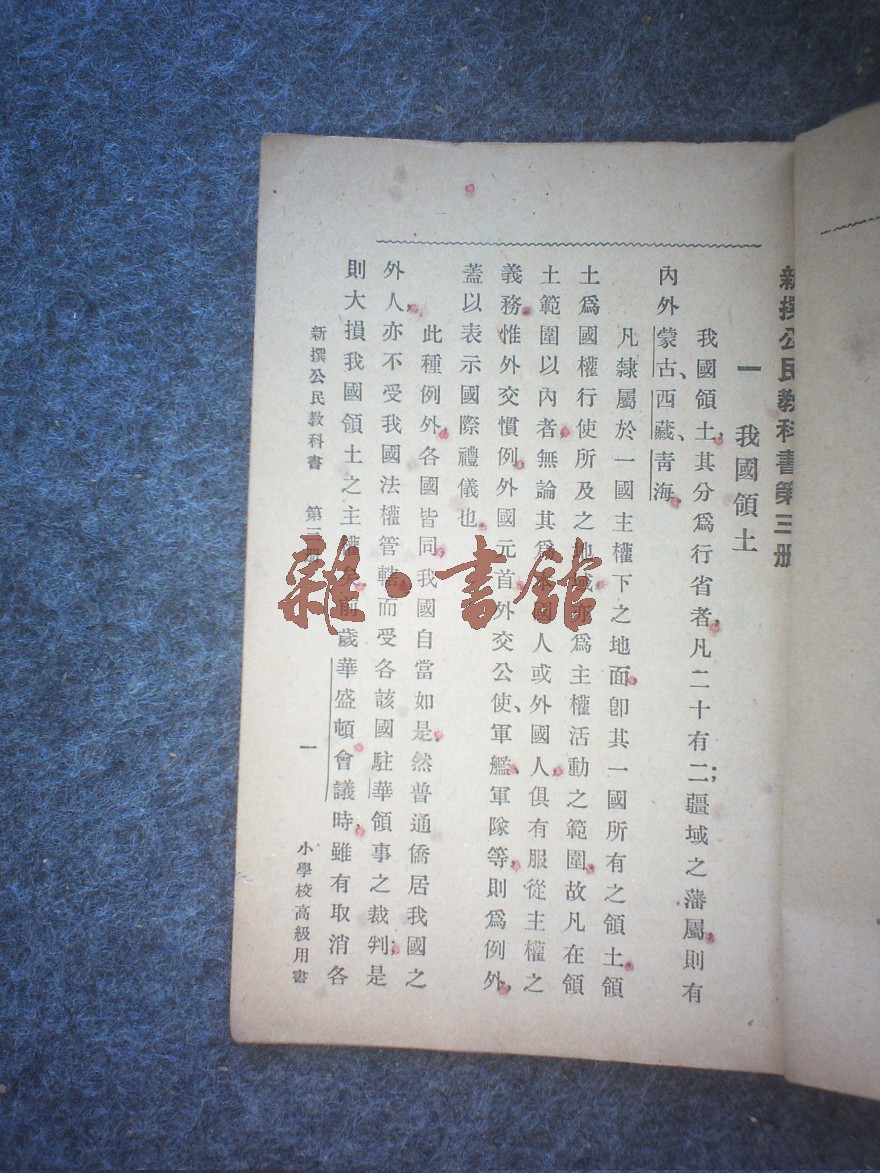 新撰公民教科書第三册
一 我國領土
我國領土,其分爲行省者,凡二十有二;疆域之藩屬,則有
內外蒙古、西藏、靑海、
凡隸屬於一國主權下之地面,卽其一國所有之領土,領
土爲國權行使所及之地域,亦爲主權活動之範圍,故凡在領
土範圍以內者,無論其爲本國人或外國人,俱有服從主權之
義務,惟外交慣例,外國元首、外交公使、軍艦、軍隊等,則爲例外,
蓋以表示國際禮儀也,
此種例外,各國皆同,我國自當如是,然普通僑居我國之
外人,亦不受我國法權管轄,而受各該國駐華領事之裁判;是
則大損我國領土之主權矣,前歲華盛頓會議時,雖有取消各
新撰公民教科書 第三册 一 小學校高級用書
雜·書館